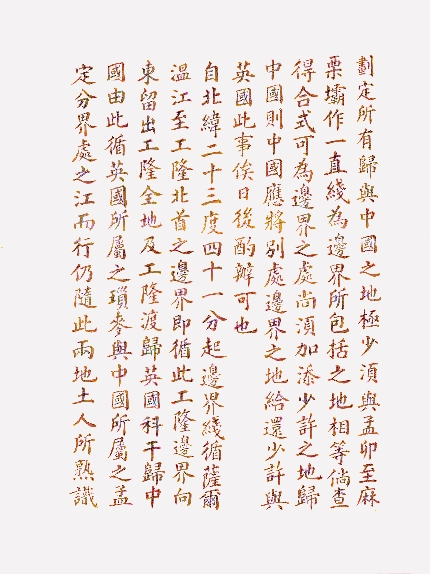 劃定所有歸與中國之地極少須與孟卯至麻
栗壩作一直綫為邊界所包括之地相等倘查
得合式可為邊界之處尚須加添少許之地歸
中國則中國應將別處邊界之地給還少許與
英國此事俟日後酌辦可也
自北緯二十三度四十一分起邊界綫循薩爾
溫江至工隆北首之邊界即循此工隆邊界向
東留出工隆全地及工隆渡歸英國科干歸中
國由此循英國所屬之瑣麥與中國所屬之孟
定分界處之江而行仍隨此兩地土人所熟識